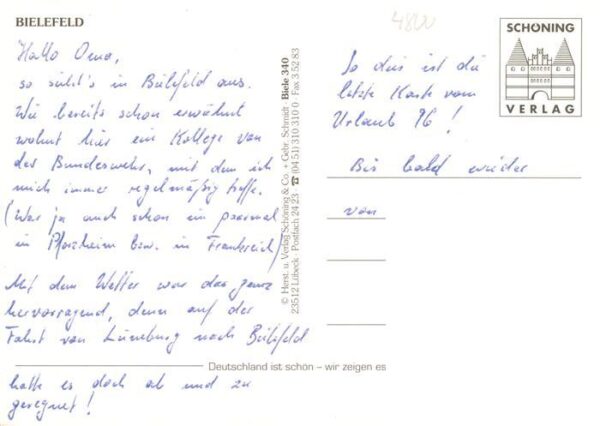 BIELEFELD
Hallo Oma,
so sieht's in Bielefeld aus.
Wie bereits schon erwähnt
wohnt hier ein Kollege von
der Bundeswehr, mit dem ich
mich immer regelmäßig treffe.
(War ja auch schon ein paarmal
in Pforzheim bzw. in Frankreich)
Mit dem Wetter war das ganz
hervorragend, denn auf der
Fahrt von Lüneburg nach Bielefeld
hatte es doch ab und zu
geregnet!
© Herst. u. Verlag Schöning & Co. + Gebr. Schmidt Biele 340
23512 Lübeck · Postfach 24 23 ☎ (04 51) 310 310-0 · Fax 3 52 83
Deutschland ist schön – wir zeigen es
4800
SCHÖNING
VERLAG
So dies ist die
letzte Karte vom
Urlaub 96!
Bis bald wieder
von